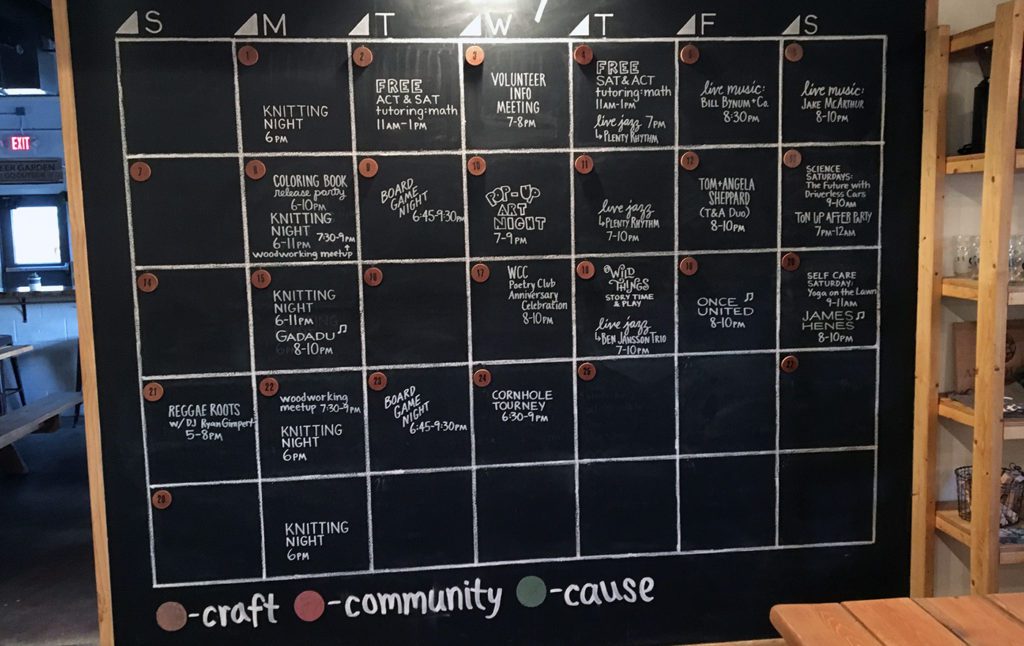 EXIT
BEER GARDEN
S M T W T F S
1
KNITTING
NIGHT
6PM
2
FREE
ACT & SAT
tutoring: math
11AM-1PM
3
VOLUNTEER
INFO
MEETING
7-8PM
4
FREE
SAT & ACT
tutoring: math
11AM-1PM
live jazz 7PM
↳PLENTY RHYTHM
5
live music:
BILL BYNUM + CO.
8:30PM
6
live music:
JAKE MCARTHUR
8-10PM
7
8
COLORING BOOK
release party
6-10PM
KNITTING
NIGHT
6-11PM 7:30-9PM
+
woodworking meetup
9
BOARD
GAME
NIGHT 6:45-9:30PM
10
POP-UP
ART
NIGHT
7-9PM
11
live jazz
↳PLENTY RHYTHM
7-10PM
12
TOM + ANGELA
SHEPPARD
(T&A DUO)
8-10PM
13
SCIENCE
SATURDAYS:
The Future with
Driverless Cars
9-10AM
TON UP AFTER PARTY
7PM-12AM
14
15
KNITTING
NIGHT
6-11PM
GADADU♫
8-10PM
16
17
WCC
Poetry Club
Anniversary
Celebration
8-10PM
18
WILD
THINGS
STORY TIME
& PLAY
live jazz
↳BEN JANSSON TRIO
7-10PM
19
ONCE ♫
UNITED
8-10PM
20
SELF CARE
SATURDAY:
Yoga on the Lawn
9-11AM
JAMES♫
HENES
8-10PM
21
REGGAE ROOTS
w/ DJ Ryan Gimpert
5-8PM
22
woodworking
meetup 7:30-9PM
KNITTING
NIGHT
6PM
23
BOARD
GAME
NIGHT 6:45-9:30PM
24
CORNHOLE
TOURNEY
6:30-9PM
25
27
28
KNITTING
NIGHT
6PM
-craft -community -cause